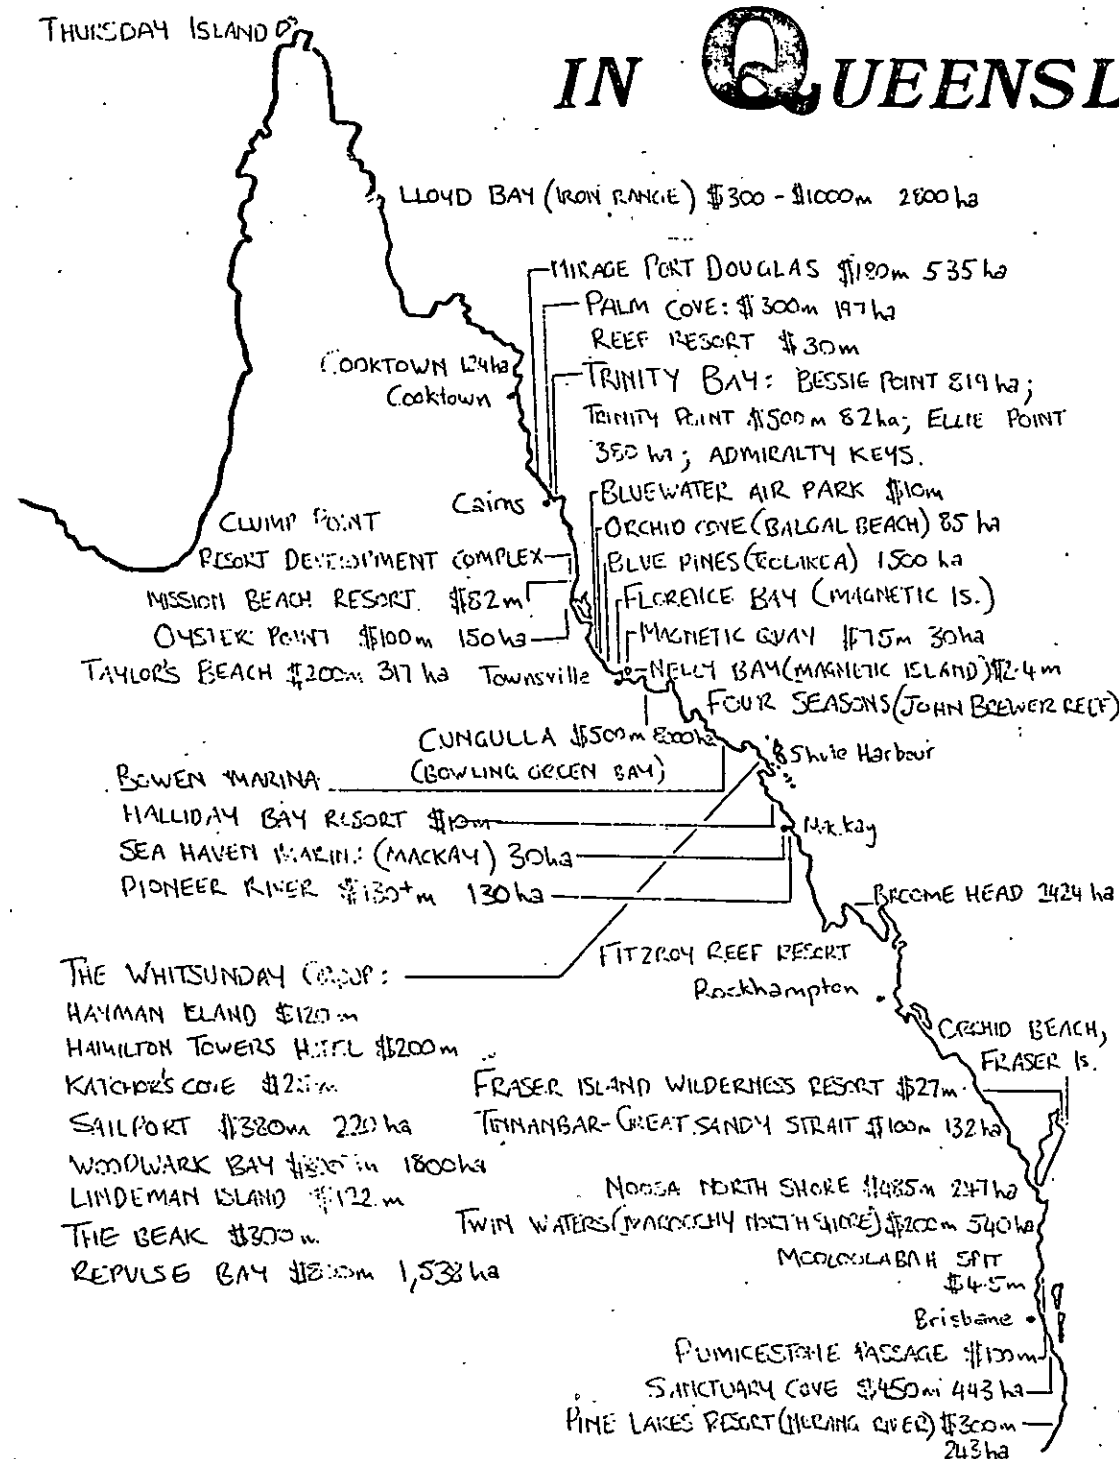 THURSDAY ISLAND
IN QUEENSL
LLOYD BAY (IRON RANGE) $300 - $1000m 2800 ha
MIRAGE PORT DOUGLAS $180m 535 ha
PALM COVE: $300m 197 ha
REEF RESORT $30m
COOKTOWN 124ha
Cooktown
TRINITY BAY: BESSIE POINT 819 ha;
TRINITY POINT $500m 82ha; ELLIE POINT
380 ha; ADMIRALTY KEYS.
Cairns
BLUEWATER AIR PARK $10m
CLUMP POINT
RESORT DEVELOPMENT COMPLEX
ORCHID COVE (BALGAL BEACH) 85 ha
BLUE PINES (TOOLAKEA) 1500 ha
MISSION BEACH RESORT $82m
FLORENCE BAY (MAGNETIC IS.)
OYSTER POINT $100m 150ha
MAGNETIC QUAY $75m 30ha
TAYLOR'S BEACH $200m 317 ha
Townsville
NELLY BAY (MAGNETIC ISLAND) $2.4m
FOUR SEASONS (JOHN BREWER REEF)
CUNGULLA $500m 800ha
(BOWLING GREEN BAY)
Shute Harbour
BOWEN MARINA
HALLIDAY BAY RESORT $10m
SEA HAVEN MARINA (MACKAY) 30ha
Mackay
PIONEER RIVER $130+m 130ha
BROOME HEAD 2424 ha
FITZROY REEF RESORT
Rockhampton
THE WHITSUNDAY GROUP:
HAYMAN ISLAND $120m
HAMILTON TOWERS HOTEL $200m
KATCHOR'S COVE
SAILPORT $380m 220 ha
WOODWARK BAY 1800ha
LINDEMAN ISLAND $122m
THE BEAK $300m
REPULSE BAY 1,538 ha
ORCHID BEACH,
FRASER Is.
FRASER ISLAND WILDERNESS RESORT $27m
TINNANBAR-GREAT SANDY STRAIT $100m 132ha
NOOSA NORTH SHORE $485m 247 ha
TWIN WATERS (MAROOCHY NORTH SHORE) $200m 540ha
MOOLOOLABAH SPIT
$45m
Brisbane
PUMICESTONE PASSAGE $100m
SANCTUARY COVE $450m 443 ha
PINE LAKES RESORT (NERANG RIVER) $300m
243 ha